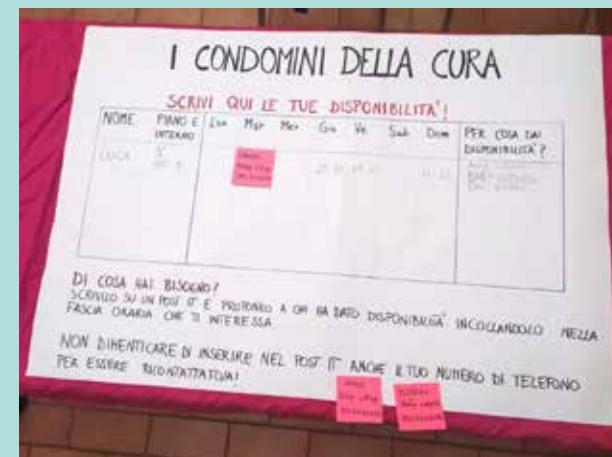 I CONDOMINI DELLA CURA
SCRIVI QUI LE TUE DISPONIBILITA'!
NOME PIANO E INTERNO Lun Mar Mer Gio Ve Sab Dom PER COSA DAI DISPONIBILITÀ?
LUCA
DI COSA HAI BISOGNO?
SCRIVILO SU UN POST IT E PROPONILO A CHI HA DATO DISPONIBILITÀ INCOLLANDOLO NELLA
FASCIA ORARIA CHE TI INTERESSA
NON DIMENTICARE DI INSERIRE NEL POST IT ANCHE IL TUO NUMERO DI TELEFONO
PER ESSERE RICONTATTATO/A!